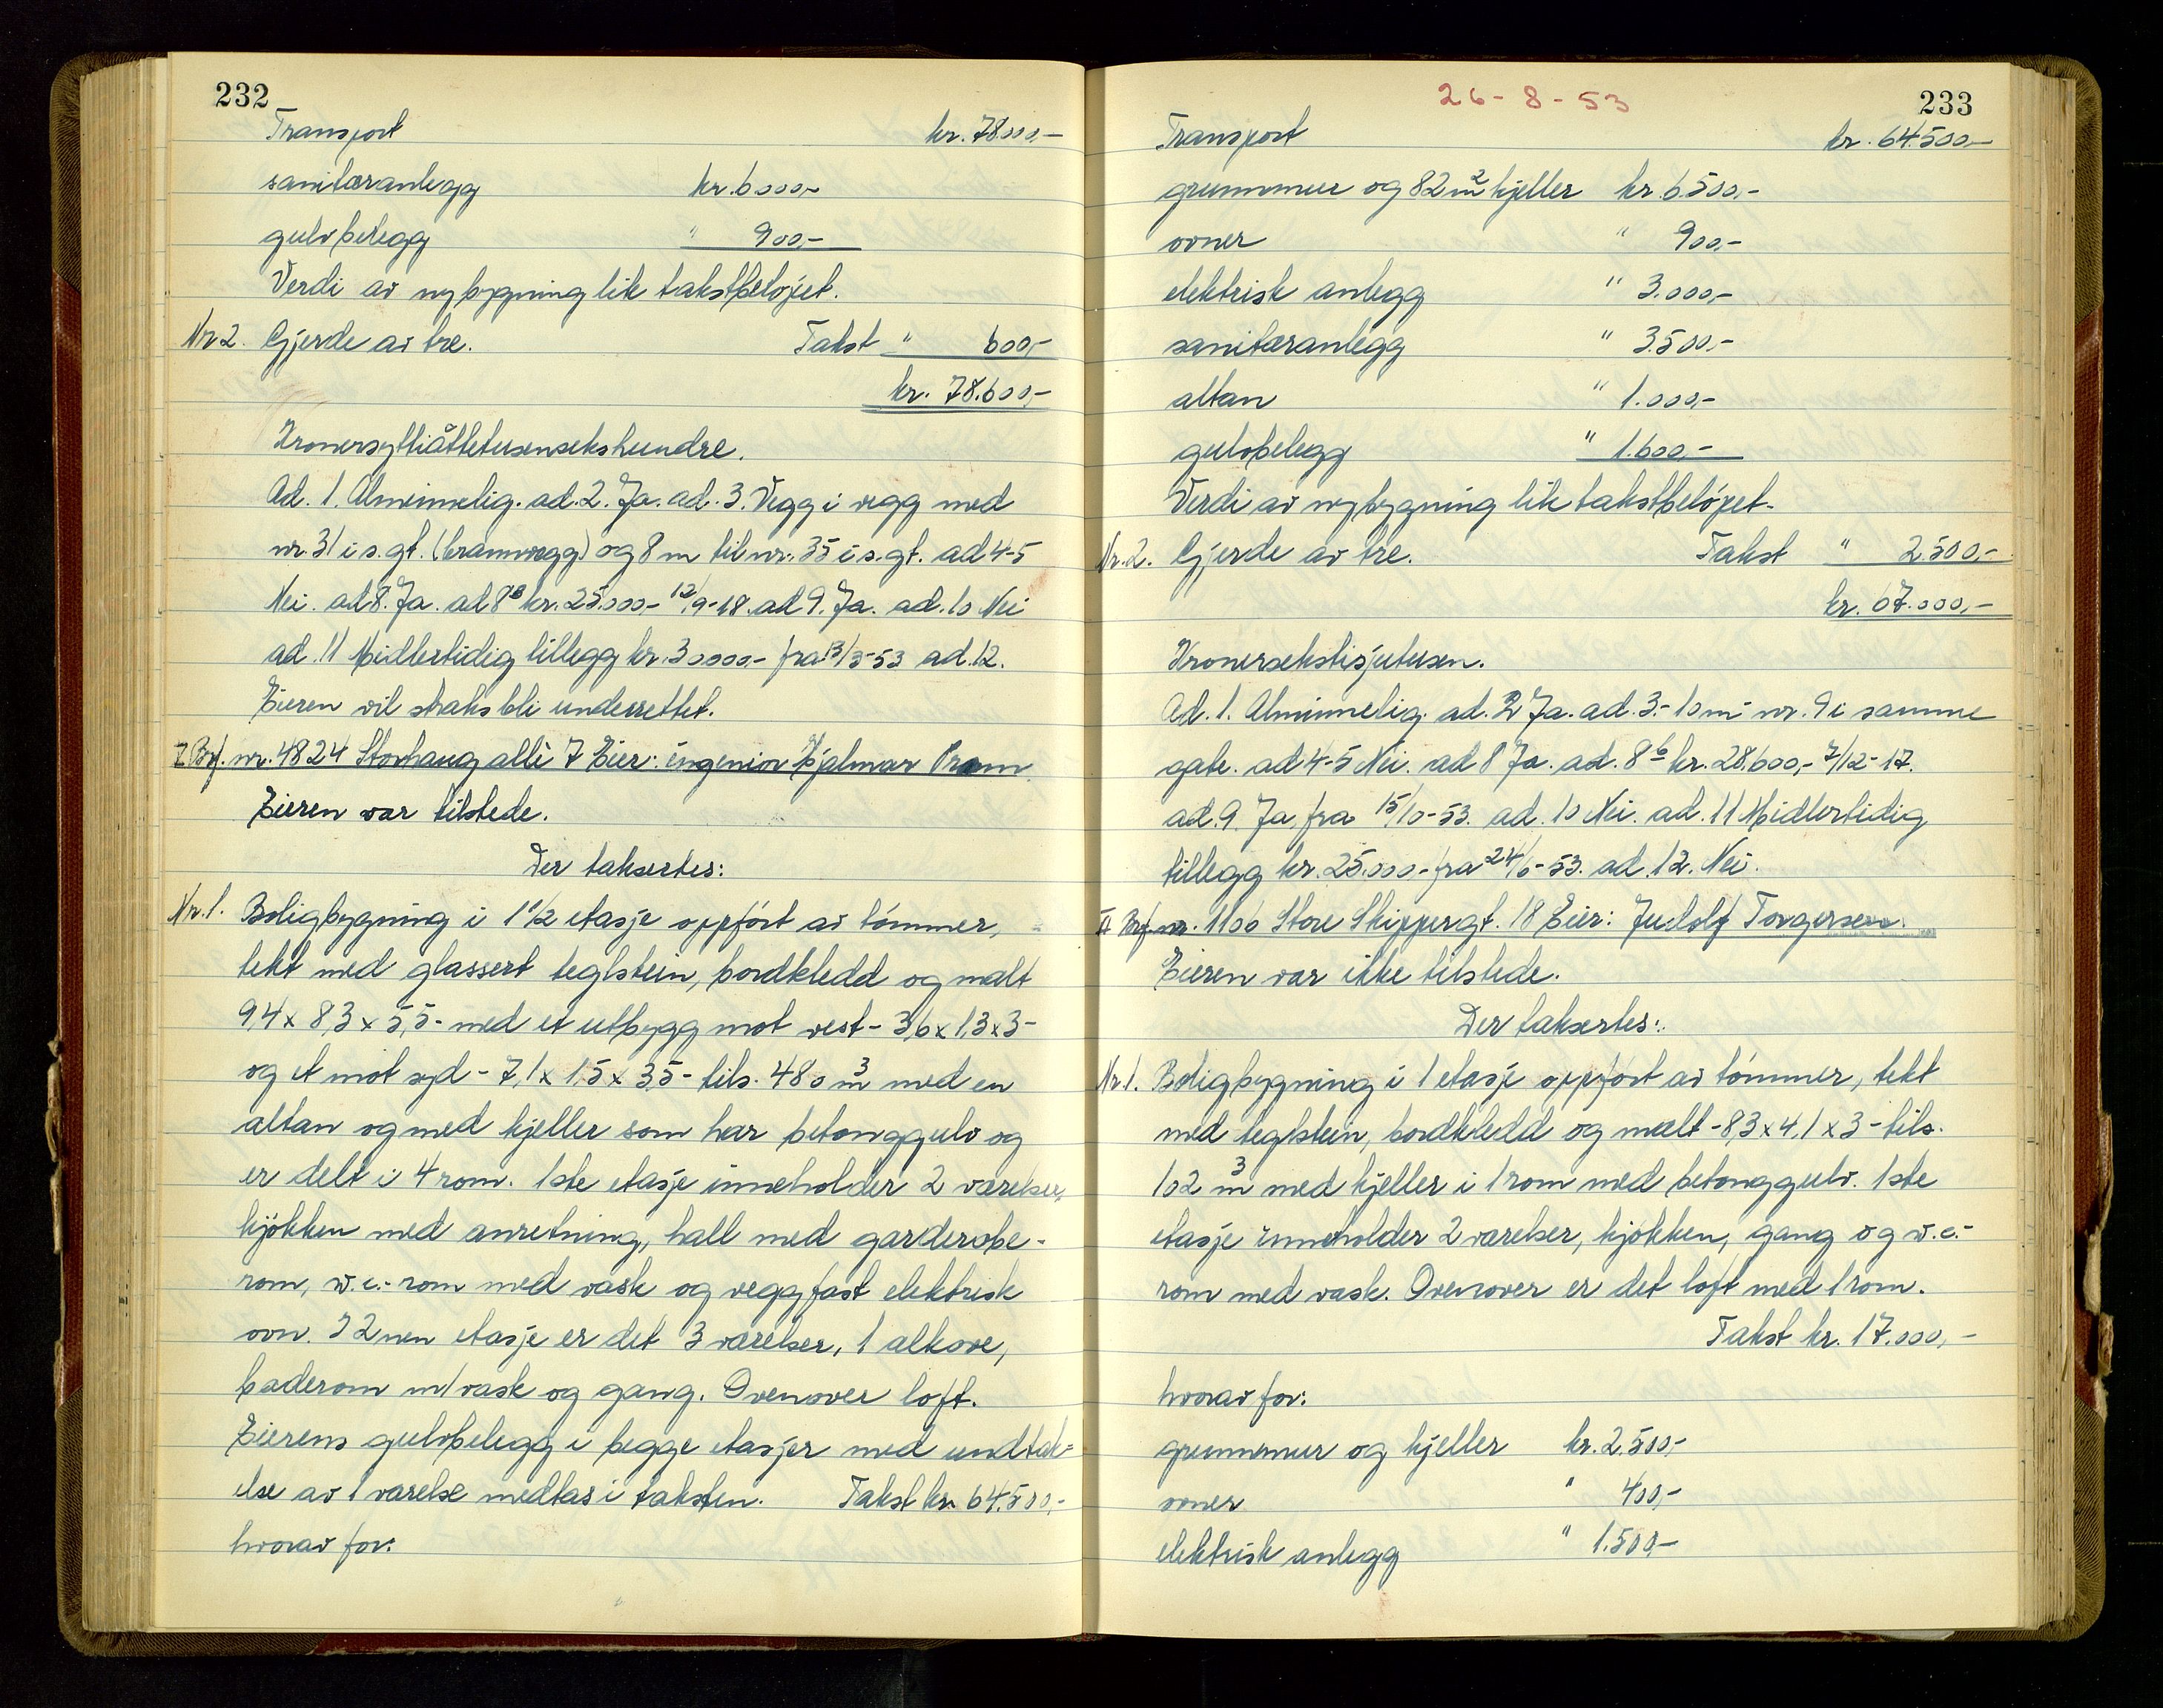 232
Transport kr. 78.000,-
sanitæranlegg kr. 6.000,-
gulvbelegg " 900,-
Verdi av nybygning lik takstbeløpet.
Nr 2. Gjerde av tre. Takst " 600,-
kr. 78.600,-
Kronersyttiåttetusensekshundre.
Ad. 1. Alminnelig. ad. 2. Ja. ad. 3. Vegg i vegg med
nr. 31 i s. gt. (brannvegg) og 8 m til nr. 35 i s. gt. ad 4-5
Nei. ad 8. Ja. ad 8 B kr. 25.000,- 12/9-18. ad 9. Ja. ad. 10 Nei
ad. 11 Midlertidig tillegg kr. 30000,- fra 13/3-53 ad. 12.
Eieren vil straks bli underrettet.
Brf. nr. 4824 Storhaug allè 7 Eier: ingeniør Hjalmar Pram.
Eieren var tilstede.
Der taksertes:
Nr. 1. Boligbygning i 1 1/2 etasje oppført av tømmer,
tekt med glassert teglstein, bordkledd og malt
9,4 x 8,3 x 5,5 - med et utbygg mot vest - 3,6 x 1,3 x 3 -
og et mot syd - 7,1 x 1,5 x 3,5 - tils. 480 m³ med en
altan og med kjeller som har betonggulv og
er delt i 4 rom. 1ste etasje inneholder 2 værelser,
kjøkken med anretning, hall med garderobe-
rom, w.c.-rom med vask og veggfast elektrisk
ovn. I 2nen etasje er det 3 værelser, 1 alkove,
baderom m/vask og gang. Ovenover loft.
Eierens gulvbelegg i begge etasjer med undtak-
else av 1 værelse medtas i taksten. Takst kr. 64.500,-
hvorav for:
26-8-53
233
Transport kr. 64.500,-
grunnmur og 82 m² kjeller kr. 6.500,-
ovner " 900,-
elektrisk anlegg " 3.000,-
sanitæranlegg " 3.500,-
altan " 1.000,-
gulvbelegg " 1.600,-
Verdi av nybygning lik takstbeløpet.
Nr. 2. Gjerde av tre. Takst " 2.500,-
kr. 67.000,-
Kronersekstisjutusen.
Ad. 1. Alminnelig. ad. 2 Ja. ad. 3. - 10 m - nr. 9 i samme
gate. ad 4-5 Nei. ad 8 Ja. ad. 8 b kr. 28.600,- 7/12-17.
ad. 9. Ja fra 15/10-53. ad. 10 Nei. ad. 11 Midlertidig
tillegg kr. 25.000,- fra 24/6-53. ad. 12. Nei.
Brf. nr. 1106 Store Skippergt. 18 Eier: Torgersen.
Eieren var ikke tilstede.
Der taksertes:
Nr. 1. Boligbygning i 1 etasje oppført av tømmer, tekt
med teglstein, bordkledd og malt - 8,3 x 4,1 x 3 - tils.
102 m³ med kjeller i 1 rom med betonggulv. 1ste
etasje inneholder 2 værelser, kjøkken, gang og w.c.-
rom med vask. Ovenover er det loft med 1 rom.
Takst kr. 17.000,-
hvorav for:
grunnmur og kjeller kr. 2.500,-
ovner " 400,-
elektrisk anlegg " 1.500,-